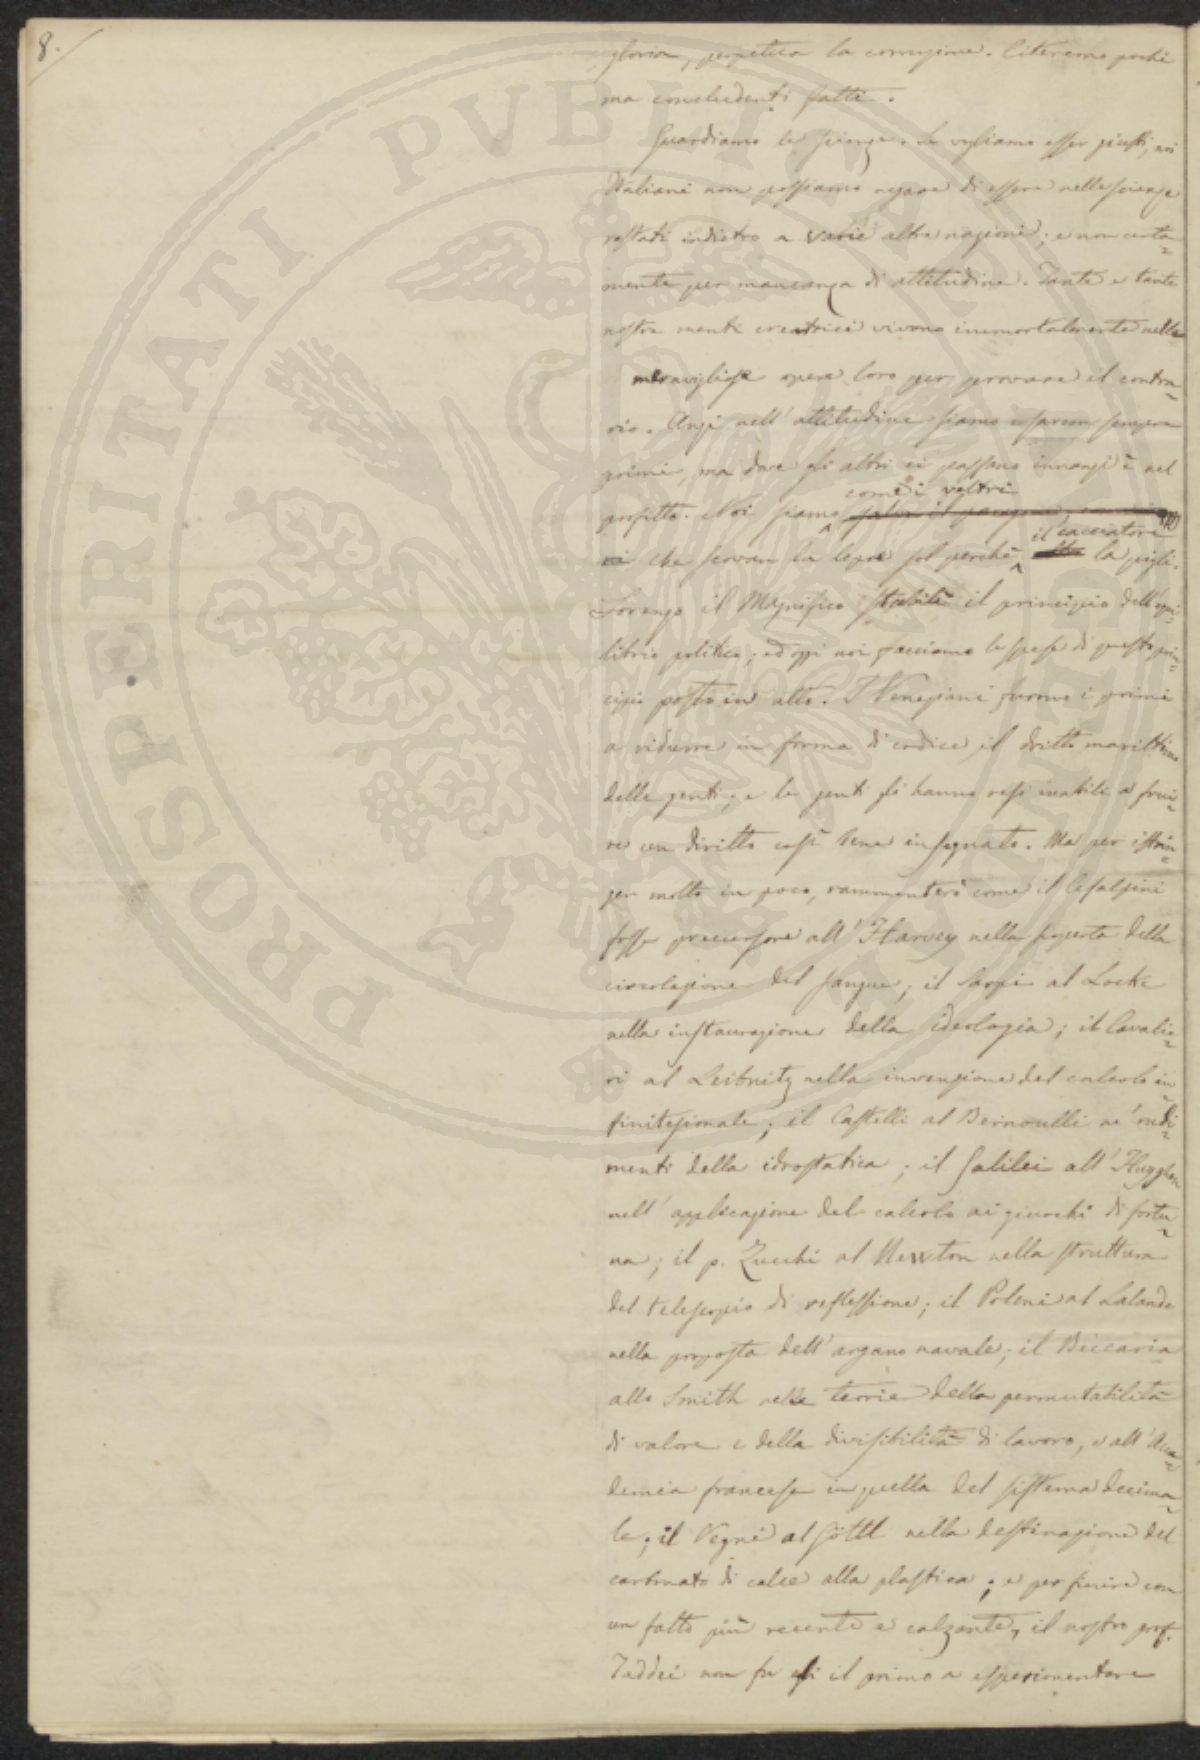 8.
gloria, perpetua la corruzione. Citeremo pochi
ma concludenti fatti.
Guardiamo le scienze. Se vogliamo esser giusti, noi
Italiani non possiamo negare di essere nelle scienze
restati indietro a varie altre nazioni; e non certa=
mente per mancanza di attitudine. Tante e tante
nostre menti creatrici vivono immortalmente nelle
meravigliose opere loro per provare il contra=
rio. Anzi nell'attitudine siamo e sarem sempre
primi, ma dove gli altri ci passano innanzi è nel
come i veltri
profitto. Noi siamo
il cacciatore
che scovan la lepre sol perchè la pigli.
Lorenzo il Magnifico stabilì il principio dell'equi=
librio politico; ed oggi noi facciamo le spese di questo prin=
cipio posto in atto. I Veneziani furono i primi
a ridurre in forma di codice il dritto marittimo
delle genti; e le genti gli hanno resi inabili a frui=
re un diritto così bene insegnato. Ma per istrin=
ger molto in poco, rammenterò come il Cesalpini
fosse precursore all'Harvey nella scoperta della
circolazione del sangue; il Sarpi al Locke
nella instaurazione della ideologia; il Cavalie=
ri al Leibnitz nella invenzione del calcolo in=
finitesimale; il Castelli al Bernoulli ne' rudi=
menti della idrostatica; il Galilei all'Huyghens
nell'applicazione del calcolo ai giuochi di fortu=
na; il p. Zucchi al Newton nella struttura
del telescopio di reflessione; il Poleni al Lalande
nella proposta dell'argano navale; il Beccaria
allo Smith nelle teorie della permutabilità
di valore e della divisibilità di lavoro, e all'Acca=
demia francese in quella del sistema decima=
le; il Vegni al Göttl nella destinazione del
carbonato di calce alla plastica; e per finire con
un fatto più recente e calzante, il nostro prof.
Taddei non fu egli il primo a esperimentare
PROSPERITATI PUBLICAE AUGENDAE